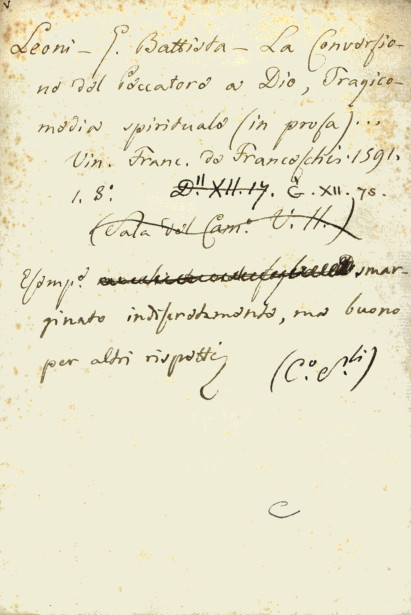 Leoni - G. Battista - La Conversio-
ne del Peccatore a Dio, Tragico-
media spirituale (in prosa)...
Ven. Franc. de Franceschi. 1591.
1. 8.° D.II XII. 17. G. XII. 78.
(Sala del Cam.° V. II.)
Esemp.° smar-
ginato indiscretamente, ma buono
per altri rispetti
C